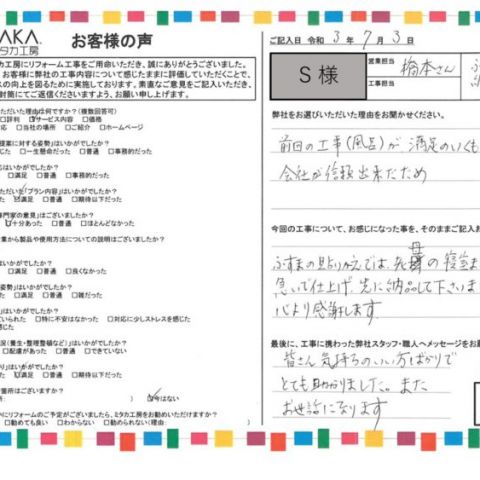 AKA.
タカ工房
お客様の声
カ工房にリフォーム工事をご用命いただき、誠にありがとうございました。
お客様に弊社の工事内容について感じたままに評価していただくことで、
スの向上を図るために実施しております。率直なご意見をご記入いただき、
封筒にてご返信くださいますよう、お願い申し上げます。
ただいた理由は何ですか？（複数回答可）
□評判 ☑サービス内容 □価格
応 □当社の場所 □ご紹介 □ホームページ
提案に対する姿勢」はいかがでしたか？
じた □一生懸命だった □普通 □事務的だった
はいかがでしたか？
□満足 □普通 □事務的だった
ただいた「プラン内容」はいかがでしたか？
☑満足 □普通 □期待以下だった
専門家の意見」はございましたか？
☑十分あった □普通 □ほとんどなかった
業から製品や使用方法についての説明はございましたか？
はいかがでしたか？
□満足 □普通 □良くなかった
姿勢」はいかがでしたか？
□満足 □普通 □雑だった
」はいかがでしたか？
ていた □特に不安はなかった □対応に少しストレスを感じた
した
況（養生・整理整頓など）」はいかがでしたか？
□配慮があった □普通 □できていない
り」はいかがでしたか？
☑満足 □普通 □期待以下だった
箇所はございますか？
） ☑号はない
にリフォームのご予定がございましたら、ミタカ工房をお勧めいただけますか？
□勧めても良い □わからない □勧められない（理由：
ご記入日 令和 3 年 7 月 3 日
S 様
営業担当 橋本さん
工事担当
弊社をお選びいただいた理由をお聞かせください。
前回の工事(風呂)が、満足のいくも
会社が信頼出来たため
今回の工事について、お感じになった事を、そのままご記入お
ふすまの貼りかえでは、先 母の寝室ま
急いで仕上げ、先に納品して下さいま
心より感謝します
最後に、工事に携わった弊社スタッフ・職人へメッセージをお願
皆さん気持ちのいい方ばかりで
とても助かりました。また
お世話になります